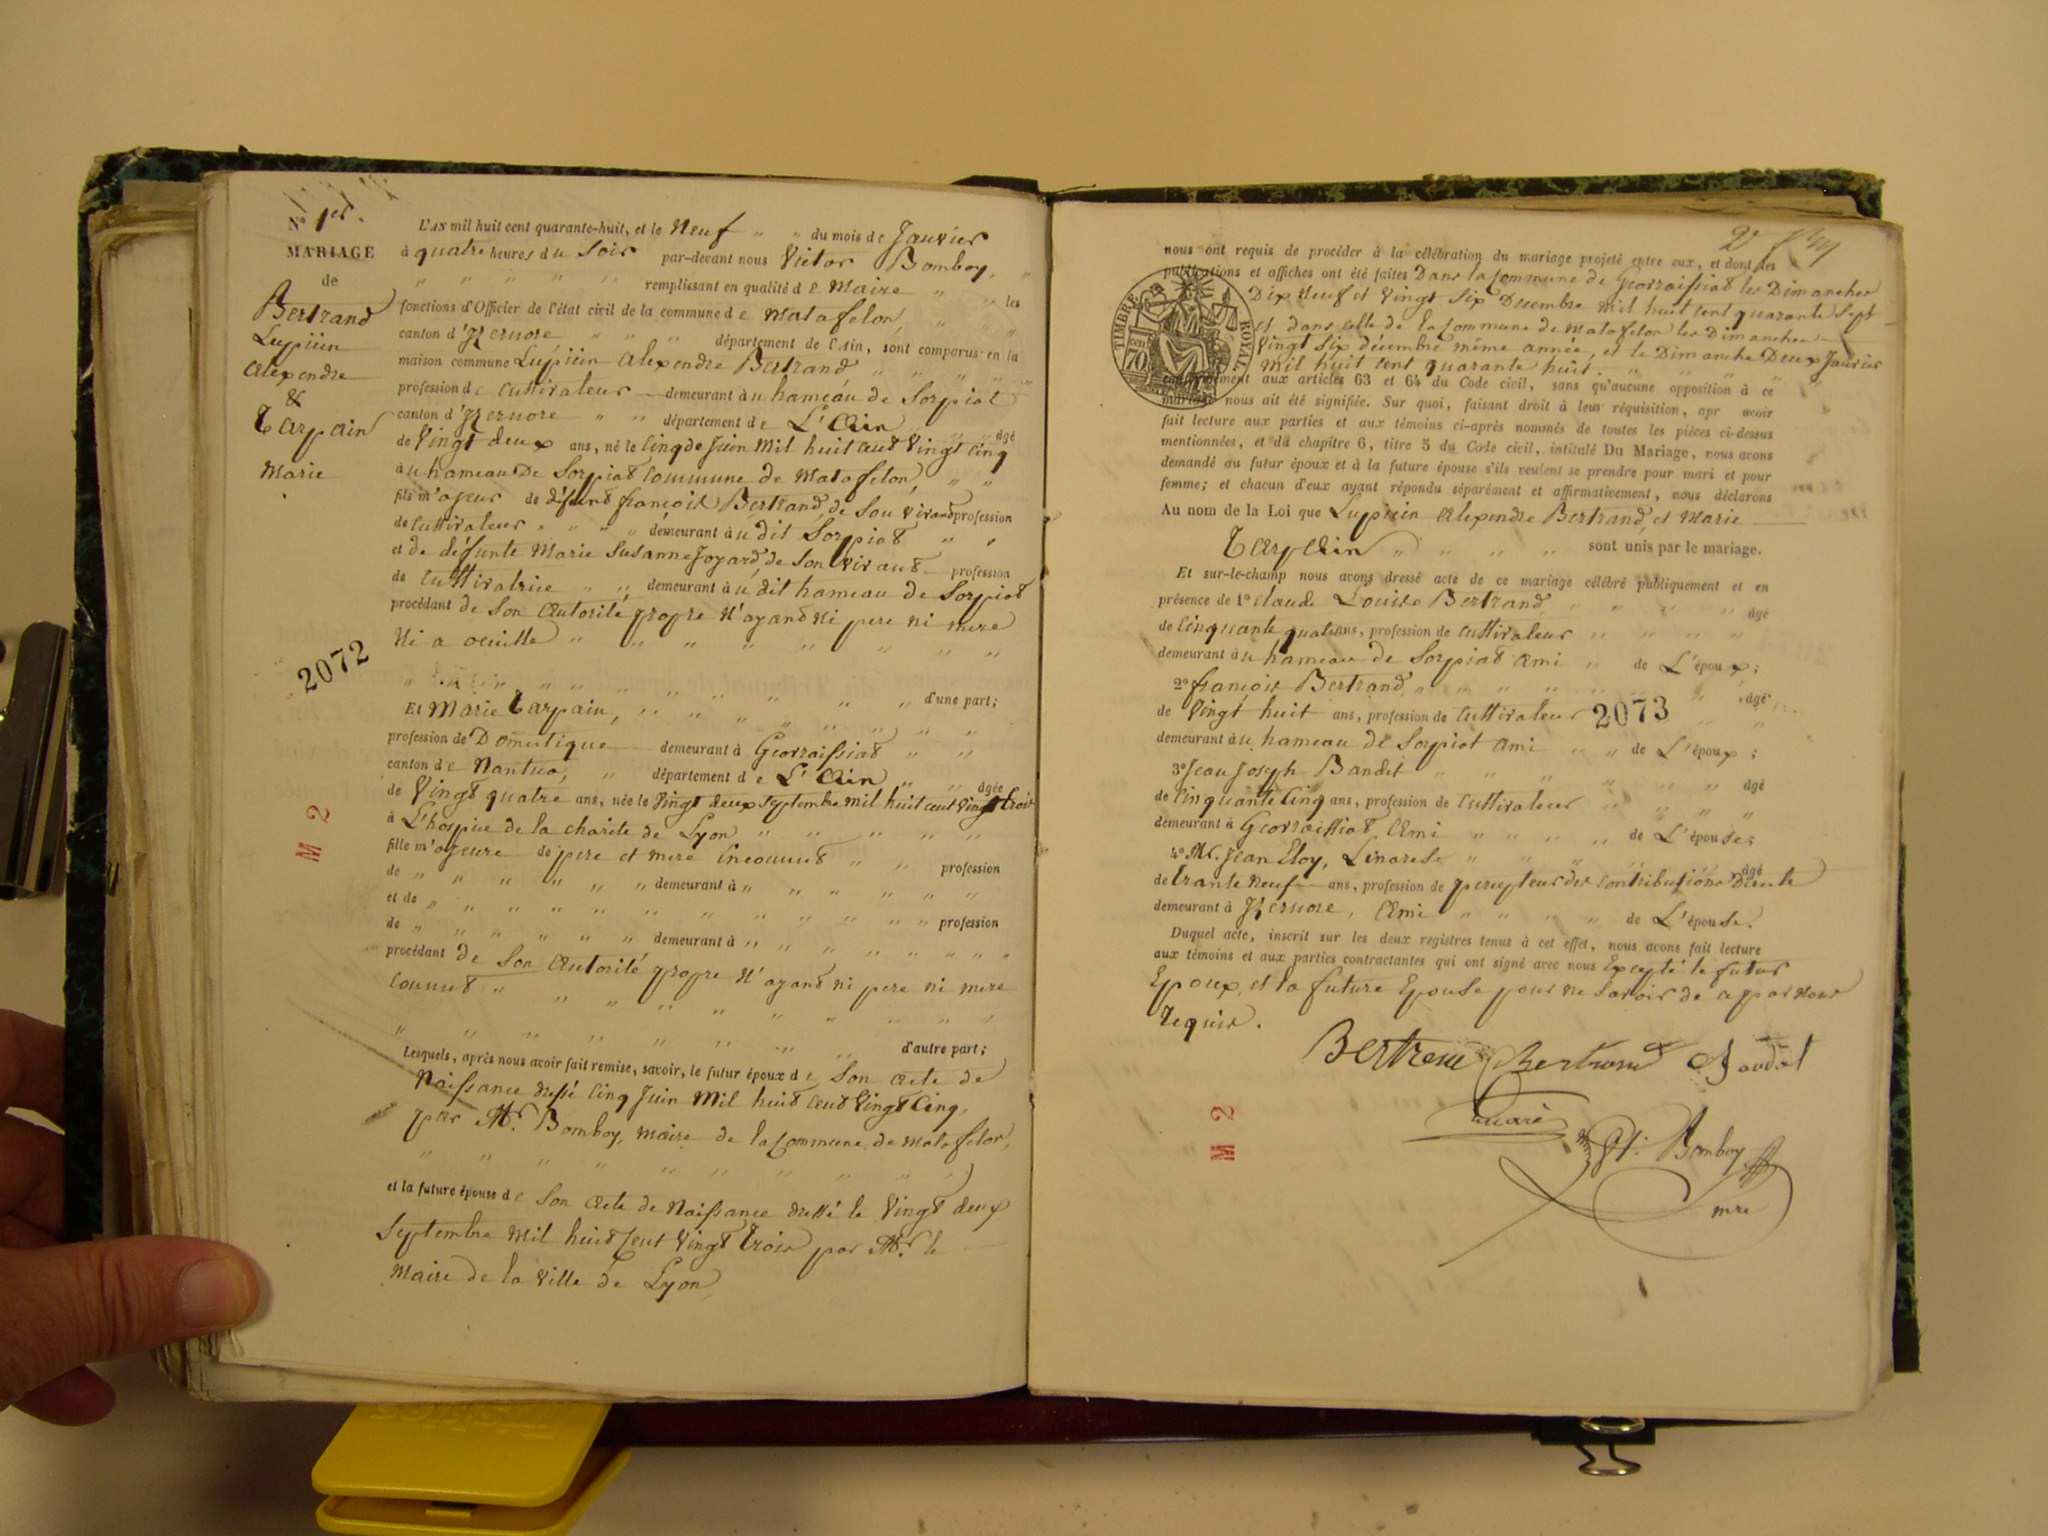 N° 1er.
MARIAGE
de
Bertrand
Lupiein
Alexendre
&
Tarpain
Marie
2072
M 2
L'AN mil huit cent quarante-huit, et le Neuf " " du mois de Janvier
à quatre heures du Soir par-devant nous Victor Bomboy, "
" " " " " remplissant en qualité de Maire " " les
fonctions d'Officier de l'état civil de la commune de Matafelon, " " "
canton d'Izernore " " " département de l'Ain, sont comparus en la
maison commune Lupiein Alexendre Bertrand " " " " "
profession de Cultivateur demeurant à u hameau de Sorpiat
canton d'Izernore " " département de L'Ain " " " âgé
de Vingt deux ans, né le Cinq de Juin Mil huit cent Vingt Cinq
à u hameau de Sorpiat Commune de Matafelon, " "
fils m'ajeur de défunt françois Bertrand, de Son Vivant profession
de Cultivateur " " " " demeurant à u dit Sorpiat " "
et de défunte Marie Susanne Joyard, de Son Vivant profession
de Cultivatrice " " demeurant à u dit hameau de Sorpiat
procédant de Son Autorité propre N'ayant ni pere ni mere
Ni a oeuille " " " " " " " "
" " " " " " " " " " d'une part;
Et Marie Tarpain, " " " " " " "
profession de Domestique demeurant à Geovraissiat " "
canton de Nantua, " département de L'Ain " " âgée
de Vingt quatre ans, née le Vingt deux Septembre mil huit cent Vingt trois
à L'hospice de la charite de Lyon " " " " "
fille m'ajeure de pere et mere Inconnus " " profession
de " " " " " " demeurant à " " " " " "
et de " " " " " " " " " " " " profession
de " " " " " " demeurant à " " " " " " "
procédant de Son Autorité propre N'ayant ni pere ni mere
Connus " " " " " " " " "
" " " " " " " d'autre part;
Lesquels, après nous avoir fait remise, savoir, le futur époux de Son Acte de
Naissance dressé Cinq Juin Mil huit Cent Vingt Cinq,
par Mr. Bomboy, Maire de la Commune de Matafelon,
" " " " " " " " " "
et la future épouse de Son Acte de Naissance dressé le Vingt deux
Septembre Mil huit Cent Vingt trois par Mr. le
Maire de la Ville de Lyon,
nous ont requis de procéder à la célébration du mariage projeté entre eux, et dont les
publications et affiches ont été faites Dans la Commune de Géovraissiat les Dimanches
Dix Neuf et Vingt Six Decembre Mil huit Cent quarante Sept
et dans celle de la Commune de Matafelon les Dimanches
Vingt Six décembre même année, et le Dimanche Deux Janvier
Mil huit Cent quarante huit. " " " "
TIMBRE ROYAL
70
conformément aux articles 63 et 64 du Code civil, sans qu'aucune opposition à ce
mariage nous ait été signifiée. Sur quoi, faisant droit à leur réquisition, apr avoir
fait lecture aux parties et aux témoins ci-après nommés de toutes les pièces ci-dessus
mentionnées, et du chapitre 6, titre 5 du Code civil, intitulé Du Mariage, nous avons
demandé au futur époux et à la future épouse s'ils veulent se prendre pour mari et pour
femme; et chacun d'eux ayant répondu séparément et affirmativement, nous déclarons
Au nom de la Loi que Lupiein Alexendre Bertrand, et Marie
Tarpain " " " " sont unis par le mariage.
Et sur-le-champ nous avons dressé acte de ce mariage célébré publiquement et en
présence de 1° Claude Louise Bertrand " " " " âgé
de Cinquante quatre ans, profession de Cultivateur " " " "
demeurant à u hameau de Sorpiat Ami " de L'époux;
2° françois Bertrand " " " " " " âgé
de Vingt huit ans, profession de Cultivateur 2073 " "
demeurant à u hameau de Sorpiat Ami " " de L'époux;
3° Jean Joseph Baudet " " " " " âgé
de Cinquante Cinq ans, profession de Cultivateur " " " "
demeurant à Geovraissiat Ami " " " " de L'épouse;
4° Mr. Jean Eloy, Linarese " " " " " âgé
de trante Neuf ans, profession de percepteur des Contributions Directe
demeurant à Izernore, Ami " " " " de L'épouse.
Duquel acte, inscrit sur les deux registres tenus à cet effet, nous avons fait lecture
aux témoins et aux parties contractantes qui ont signé avec nous Excepté le futur
Epoux, et la future Epouse pour ne Savoir de ce par Nous
Requis.
Bertrand Bertrand Baudet
Bomboy
mre
M 2